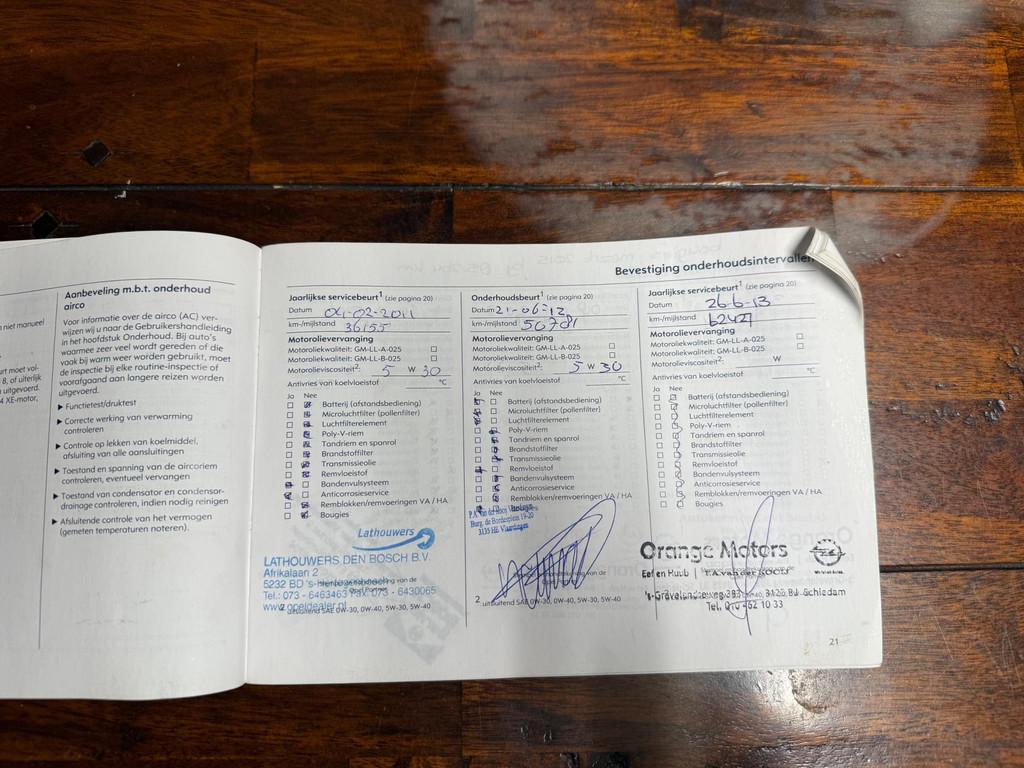 niet manueel
urt moet vol-
8, of uiterlijk
uitgevoerd.
4 XE-motor,
Aanbeveling m.b.t. onderhoud
airco
Voor informatie over de airco (AC) ver-
wijzen wij u naar de Gebruikershandleiding
in het hoofdstuk Onderhoud. Bij auto's
waarmee zeer veel wordt gereden of die
vaak bij warm weer worden gebruikt, moet
de inspectie bij elke routine-inspectie of
voorafgaand aan langere reizen worden
uitgevoerd.
▶ Functietest/druktest
▶ Correcte werking van verwarming
controleren
▶ Controle op lekken van koelmiddel,
afsluiting van alle aansluitingen
▶ Toestand en spanning van de aircoriem
controleren, eventueel vervangen
▶ Toestand van condensator en condensor-
drainage controleren, indien nodig reinigen
▶ Afsluitende controle van het vermogen
(gemeten temperaturen noteren).
Bevestiging onderhoudsintervallen
Jaarlijkse servicebeurt¹ (zie pagina 20)
Datum 01-02-2011
km-/mijlstand 36155
Motorolievervanging
Motoroliekwaliteit: GM-LL-A-025
Motoroliekwaliteit: GM-LL-B-025
Motorolieviscositeit²: 5 W 30
Antivries van koelvloeistof °C
Ja Nee
Batterij (afstandsbediening)
Microluchtfilter (pollenfilter)
Luchtfilterelement
Poly-V-riem
Tandriem en spanrol
Brandstoffilter
Transmissieolie
Remvloeistof
Bandenvulsysteem
Anticorrosieservice
Remblokken/remvoeringen VA / HA
Bougies
Lathouwers
LATHOUWERS DEN BOSCH B.V.
Afrikalaan 2
5232 BD 's-Hertogenbosch
Tel.: 073 - 6463463 Fax: 073 - 6430065
www.opeldealer.nl
2 uitsluitend SAE 0W-30, 0W-40, 5W-30, 5W-40
Onderhoudsbeurt¹ (zie pagina 20)
Datum 21-06-12
km-/mijlstand 50781
Motorolievervanging
Motoroliekwaliteit: GM-LL-A-025
Motoroliekwaliteit: GM-LL-B-025
Motorolieviscositeit²: 5 W 30
Antivries van koelvloeistof °C
Ja Nee
Batterij (afstandsbediening)
Microluchtfilter (pollenfilter)
Luchtfilterelement
Poly-V-riem
Tandriem en spanrol
Brandstoffilter
Transmissieolie
Remvloeistof
Bandenvulsysteem
Anticorrosieservice
Remblokken/remvoeringen VA / HA
Bougies
Burg. de Bordesplein 19-20
3135 HE Vlaardingen
2 uitsluitend SAE 0W-30, 0W-40, 5W-30, 5W-40
Jaarlijkse servicebeurt¹ (zie pagina 20)
Datum 26-6-13
km-/mijlstand 62427
Motorolievervanging
Motoroliekwaliteit: GM-LL-A-025
Motoroliekwaliteit: GM-LL-B-025
Motorolieviscositeit²: W
Antivries van koelvloeistof °C
Ja Nee
Batterij (afstandsbediening)
Microluchtfilter (pollenfilter)
Luchtfilterelement
Poly-V-riem
Tandriem en spanrol
Brandstoffilter
Transmissieolie
Remvloeistof
Bandenvulsysteem
Anticorrosieservice
Remblokken/remvoeringen VA / HA
Bougies
Orange Motors
Eef en Huub
's-Gravelandseweg 3125 BJ Schiedam
Tel. 010 462 10 33
21